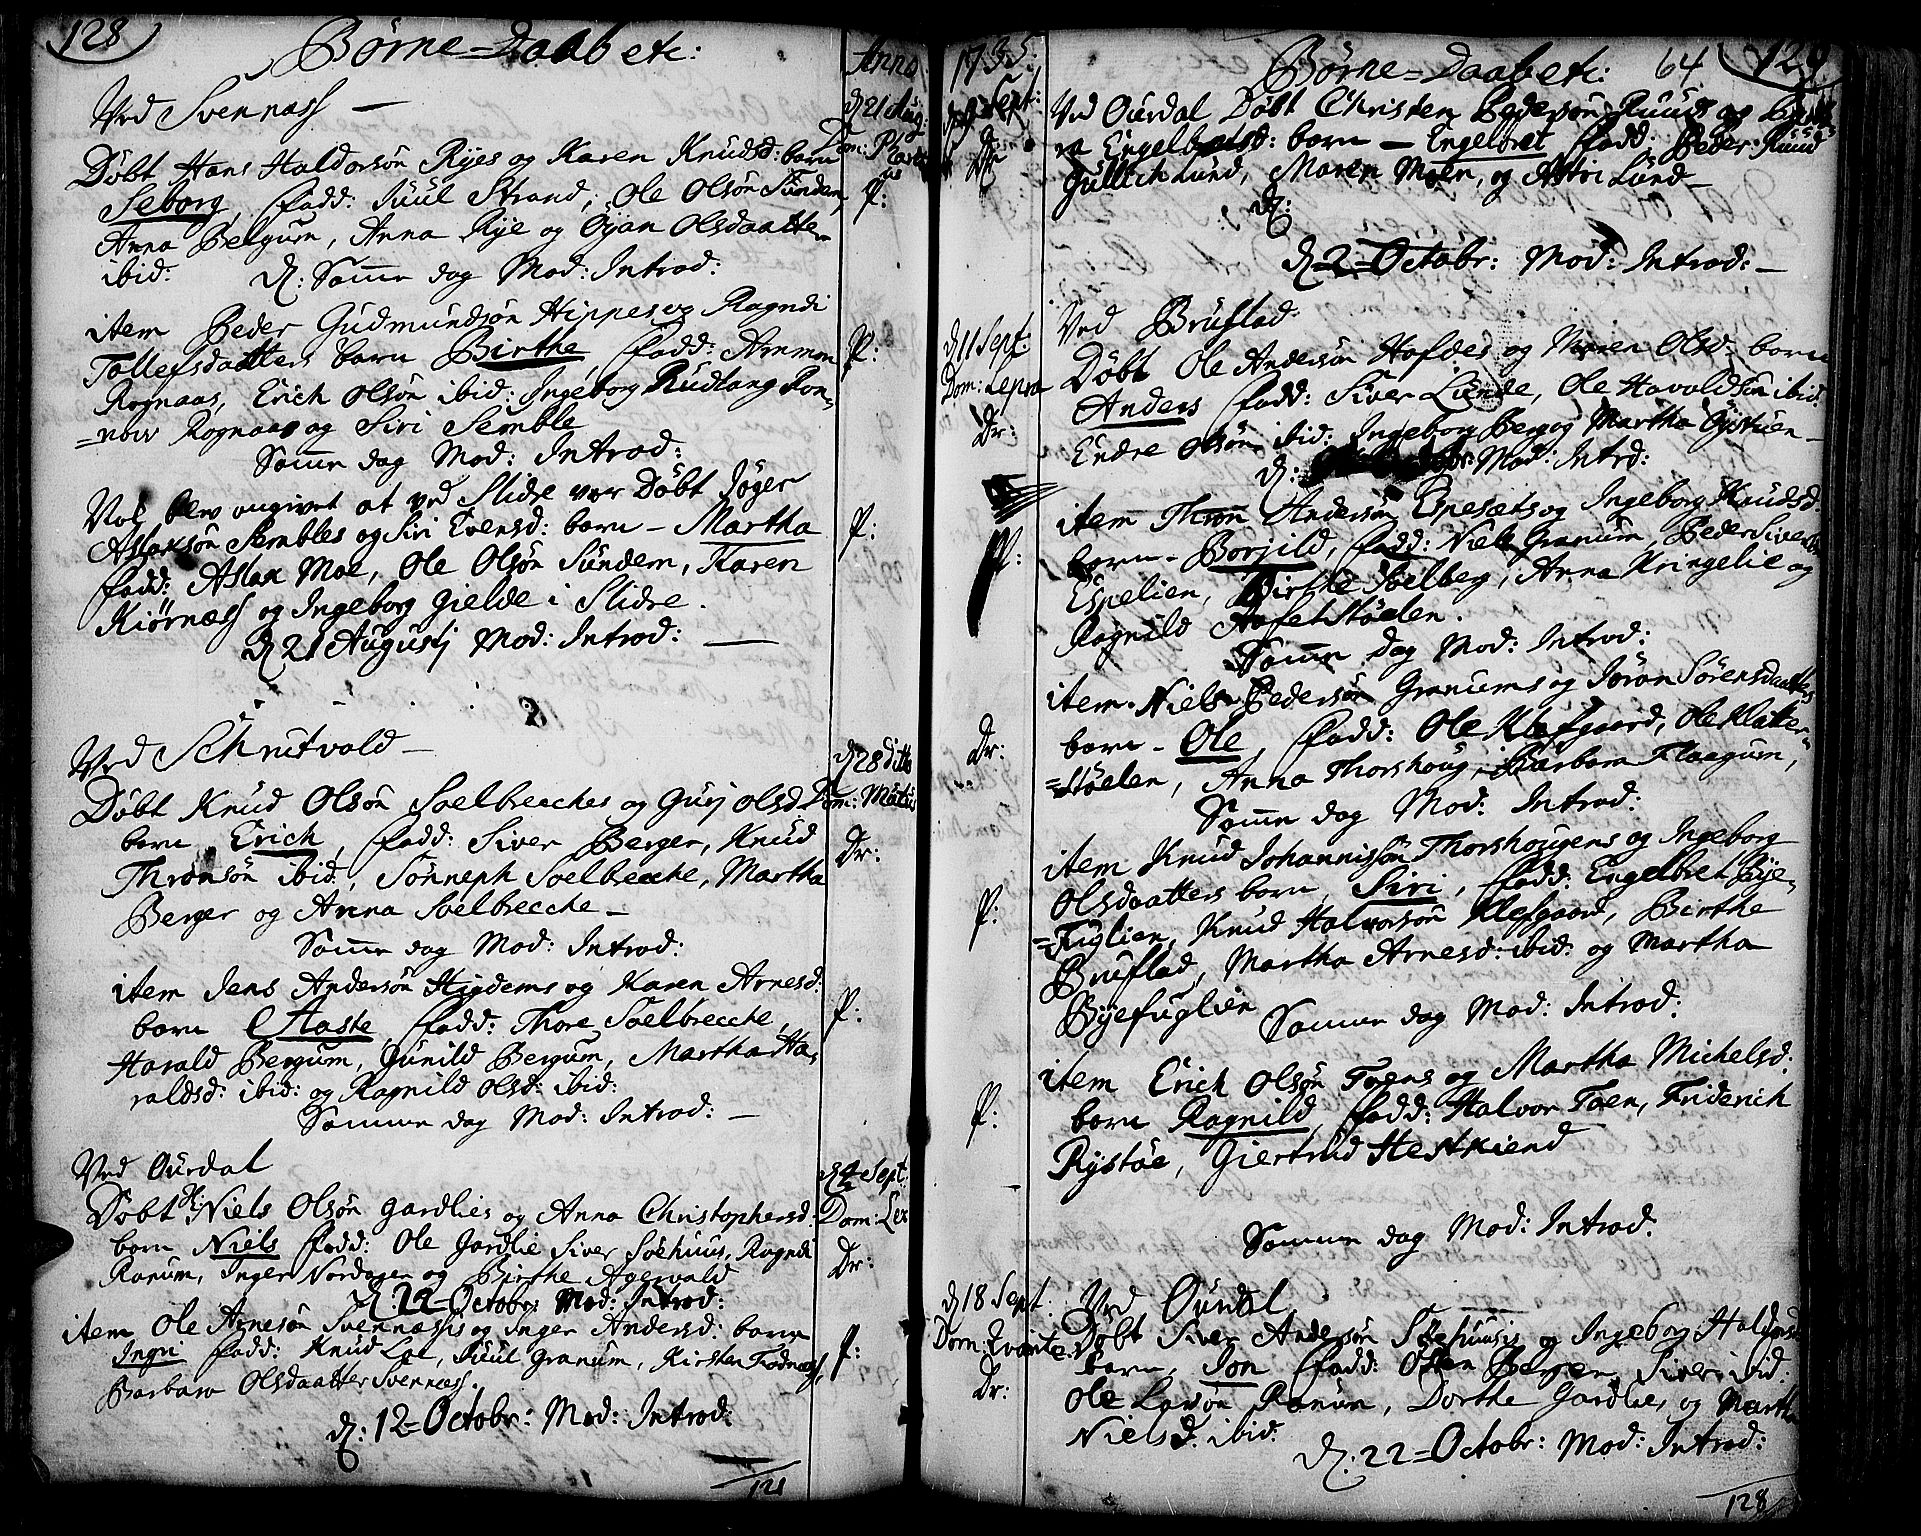 128
Børne=Daab etc:
Anno
Ved Svennæss —
d 21 Aug:
Døbt Hans Haldorsøn Ryes og Karen Knudsd: barn
Seborg, fadd: Juul Strand, Ole Olsøn Sundem,
P:
Anna Belgum, Anna Rye og Gyan Olsdaatter
ibid: d: Samme dag Mod: Introd:
item Peder Gudmundsøn Hippes og Ragndi
Tollefsdaatters barn Birthe, fadd: Ammon
P:
Rognaas, Erich Olsøn ibid: Ingeborg Rudlang Ron=
=nov Rognaas og Siri Semble
Samme dag Mod: Introd:
Nok blev angivet at ved Slidre var Døbt
Aslaksøn Sembles og Siri Evensd: barn — Martha
P:
fadd: Aslak Moe, Ole Olsøn Sundem, Karen
Kiørnæss og Ingeborg Gielde i Slidre.
d 21 Augustj Mod: Introd: —
Ved Schrutvold —
d 28 ditto
Døbt Knud Olsøn Soelbrecches og Gurj Olsd
barn Erich, fadd: Siver Berger, Knud
Dr:
Thronsøn ibid:, Sønneph Soelbrecche, Martha
Berger og Anna Soelbrecche —
Samme dag Mod: Introd:
item Jens Andersøn Higdems og Karen Arnesd:
barn Aaste fadd: Thore Soelbrecche,
P:
Harald Bergum, Gunild Bergum, Martha Ha=
raldsd: ibid: og Ragnild Olsd: ibid:
Sammen dag Mod: Introd: —
Ved Ourdal
d 4 Sept:
Døbt Niels Olsøn Gardlies og Anna Christophersd:
Dom: Lex
barn Niels fadd: Ole Gardlie Siver Søehuus, Ragndi
Dr:
Ranum, Inger Nordagen og Birthe Agervald
d: 22 Octobr: Mod: Introd:
item Ole Arnesøn Svennæssis og Inger Andersd: barn
Ingri fadd: Knud Loe, Juul Granum, Kirsten Fodnæss,
P:
Barbara Olsdaatter Svennæss.
d: 12=Octobr: Mod: Introd:
121
1735.
Børne=Daab etc: 64 129
Sept:
Ved Ourdal Døbt Christen Pedersøn Ruuds og
ra Engelbretsd: barn — Engelbret fadd: Peder Ruud
Dr
Gullich Lund, Maren Moen, og Astri Lund —
d:
d 2=Octobr: Mod: Introd: —
Ved Bruflad
d 11 Sept:
Døbt Ole Andersøn Hofdes og Maren Olsd: barn
Dom: Lepra
Anders fadd: Siver Lunde, Ole Havoldsøn ibid:
Dr:
Endre Olsøn ibid: Ingeborg Berg og Martha Gystuen —
d: Mod: Introd:
item Thron Andersøn Espesæts og Ingeborg Knudsd
P:
barn — Borjild, fadd: Niels Granum, Peder
Espelien, Birthe Soelberg, Anna Kringelie og
Ragnild Aafetstøelen.
Samme dag Mod: Introd:
item Niels Pedersøn Granums og Jøran Sørensdaatters
barn — Ole, fadd: Ole Klefgaard, Ole Klatte=
Dr:
=støelen, Anna Thorshoug, Barbara Flaagum,
Samme dag Mod: Introd:
item Knud Johannissøn Thorshougens og Ingeborg
Olsdaatters barn Siri, fadd: Engelbret Bye=
P:
=fuglien, Knud Halvorsøn Klefgaard, Birthe
Bruflad, Martha Arnesd: ibid: og Martha
Byefuglien Sammen dag Mod: Introd:
item Erich Olsøn Foens og Martha Michelsd:
P:
barn Ragnild, fadd: Halvor Foen, Friderich
Rystøe, Giertrud Hestkiend
Sammen dag Mod: Introd.
d 18 Sept.
Ved Ourdal
Døbt Siver Andersøn Søehuusis og Ingeborg
barn, Jon fadd: Osten Berger, Siver ibid:
Dr:
Ole Larsøn Ranum, Dorthe Gardlie, og Martha
Nielsd. ibid:
d: 22=Octobr: Mod: Introd:
128